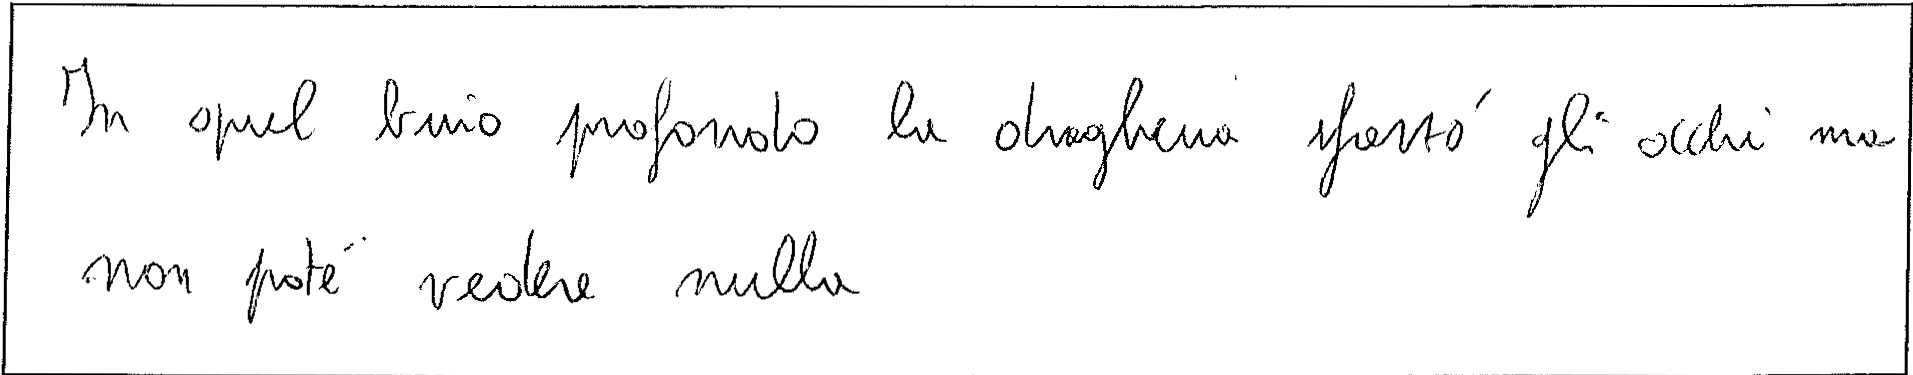 In quel buio profondo la draghena sfastó gli occhi ma
non poté vedere nulla